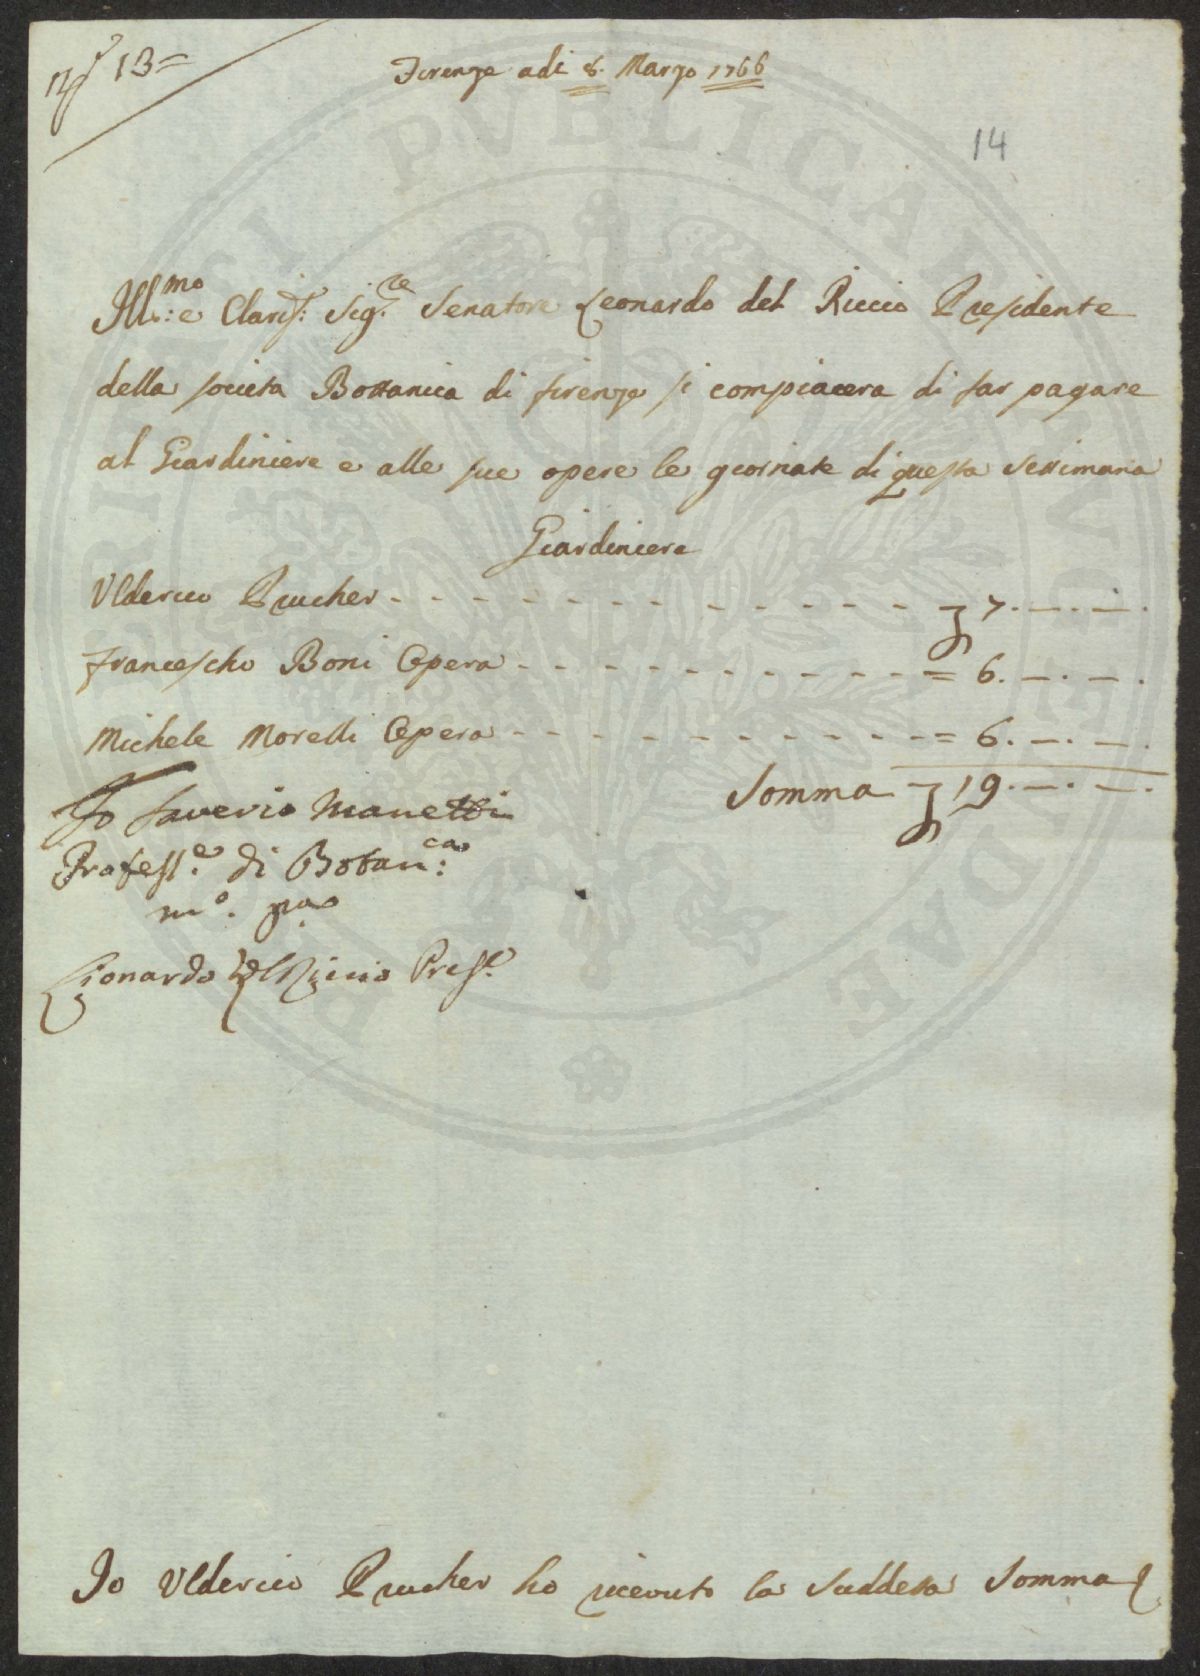 N.º 13=
Firenze adi 8. Marzo 1766
14
Ill:mo e Clariss: Sig.re Senatore Leonardo del Riccio Presidente
della societa Bottanica di firenze si compiacera di far pagare
al Giardiniere e alle sue opere le giornate di questa settimana
Giardiniere
Ulderico Prucher - - - - - - - - - - - - - - £ 7. —. —.
Francescho Boni Opera - - - - - - - - - - = 6. —. —.
Michele Morelli Opera - - - - - - - - - - = 6. —. —.
Somma £ 19. —. —.
Io Saverio Manetti
Profess.e di Botan:ca
m.o pa
Lionardo del Riccio Pres.e
Io Ulderico Prucher ho ricevuto la suddetta somma
PERITASI PUBLICAE